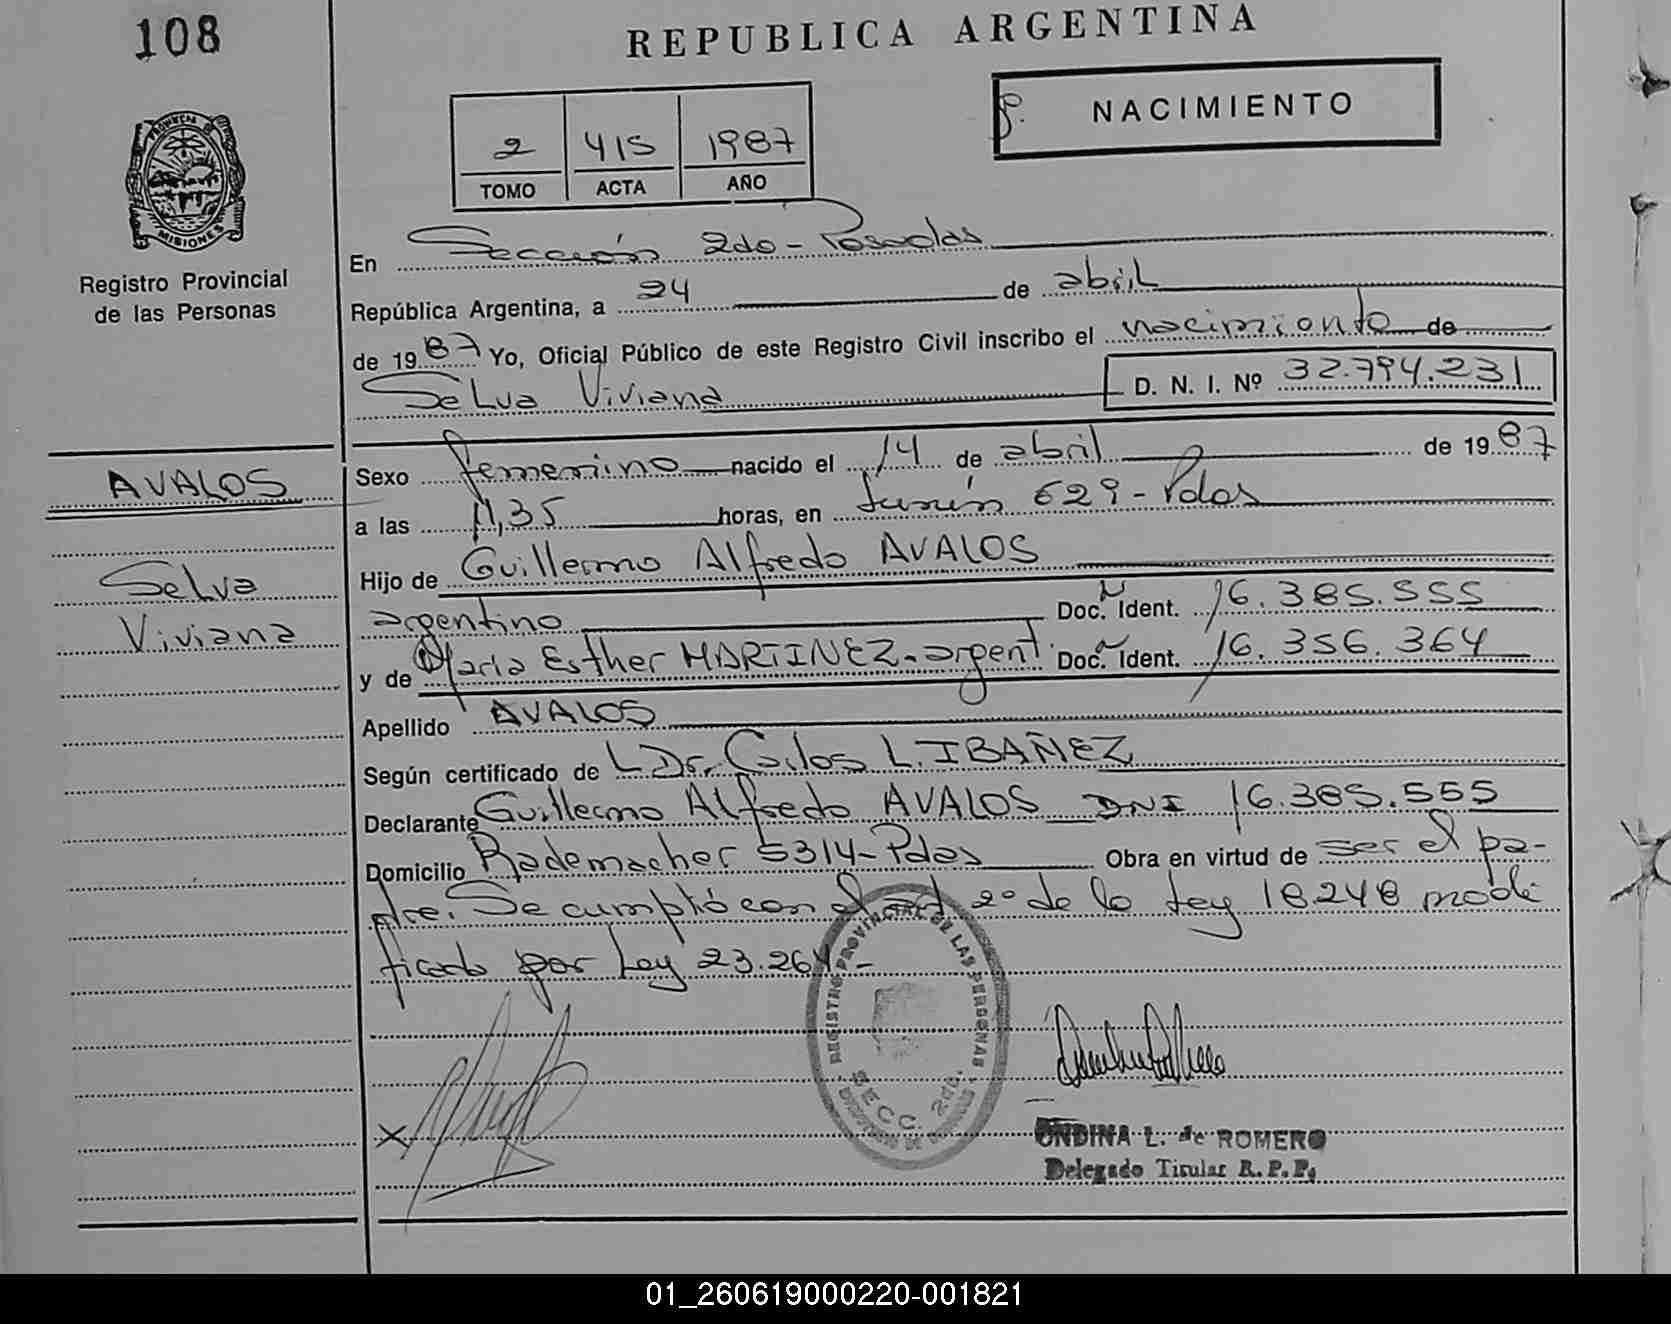 108
REPUBLICA ARGENTINA
NACIMIENTO
2 415 1987
TOMO ACTA AÑO
PROVINCIA DE
MISIONES
Registro Provincial
de las Personas
En Sección 2do - Posadas
República Argentina, a 24 de abril
de 1987 Yo, Oficial Público de este Registro Civil inscribo el nacimiento de
Selva Viviana D. N. I. Nº 32.794.231
AVALOS
Selva
Viviana
Sexo femenino nacido el 14 de abril de 1987
a las 11,35 horas, en Junín 629 - Pdas
Hijo de Guillermo Alfredo AVALOS
argentino Doc. Ident. 16.385.555
y de Maria Esther MARTINEZ - argent. Doc. Ident. 16.356.364
Apellido AVALOS
Según certificado de L Dr. Carlos L. IBAÑEZ
Declarante Guillermo Alfredo AVALOS DNI 16.385.555
Domicilio Rademacher 5314 - Pdas Obra en virtud de ser el pa-
dre. Se cumplió con el art 2º de la Ley 18248 modi
ficado por Ley 23.264 -
REGISTRO PROVINCIAL DE LAS PERSONAS
SECC. 2da.
ONDINA L. de ROMERO
Delegado Titular R. P. P.
01_260619000220-001821